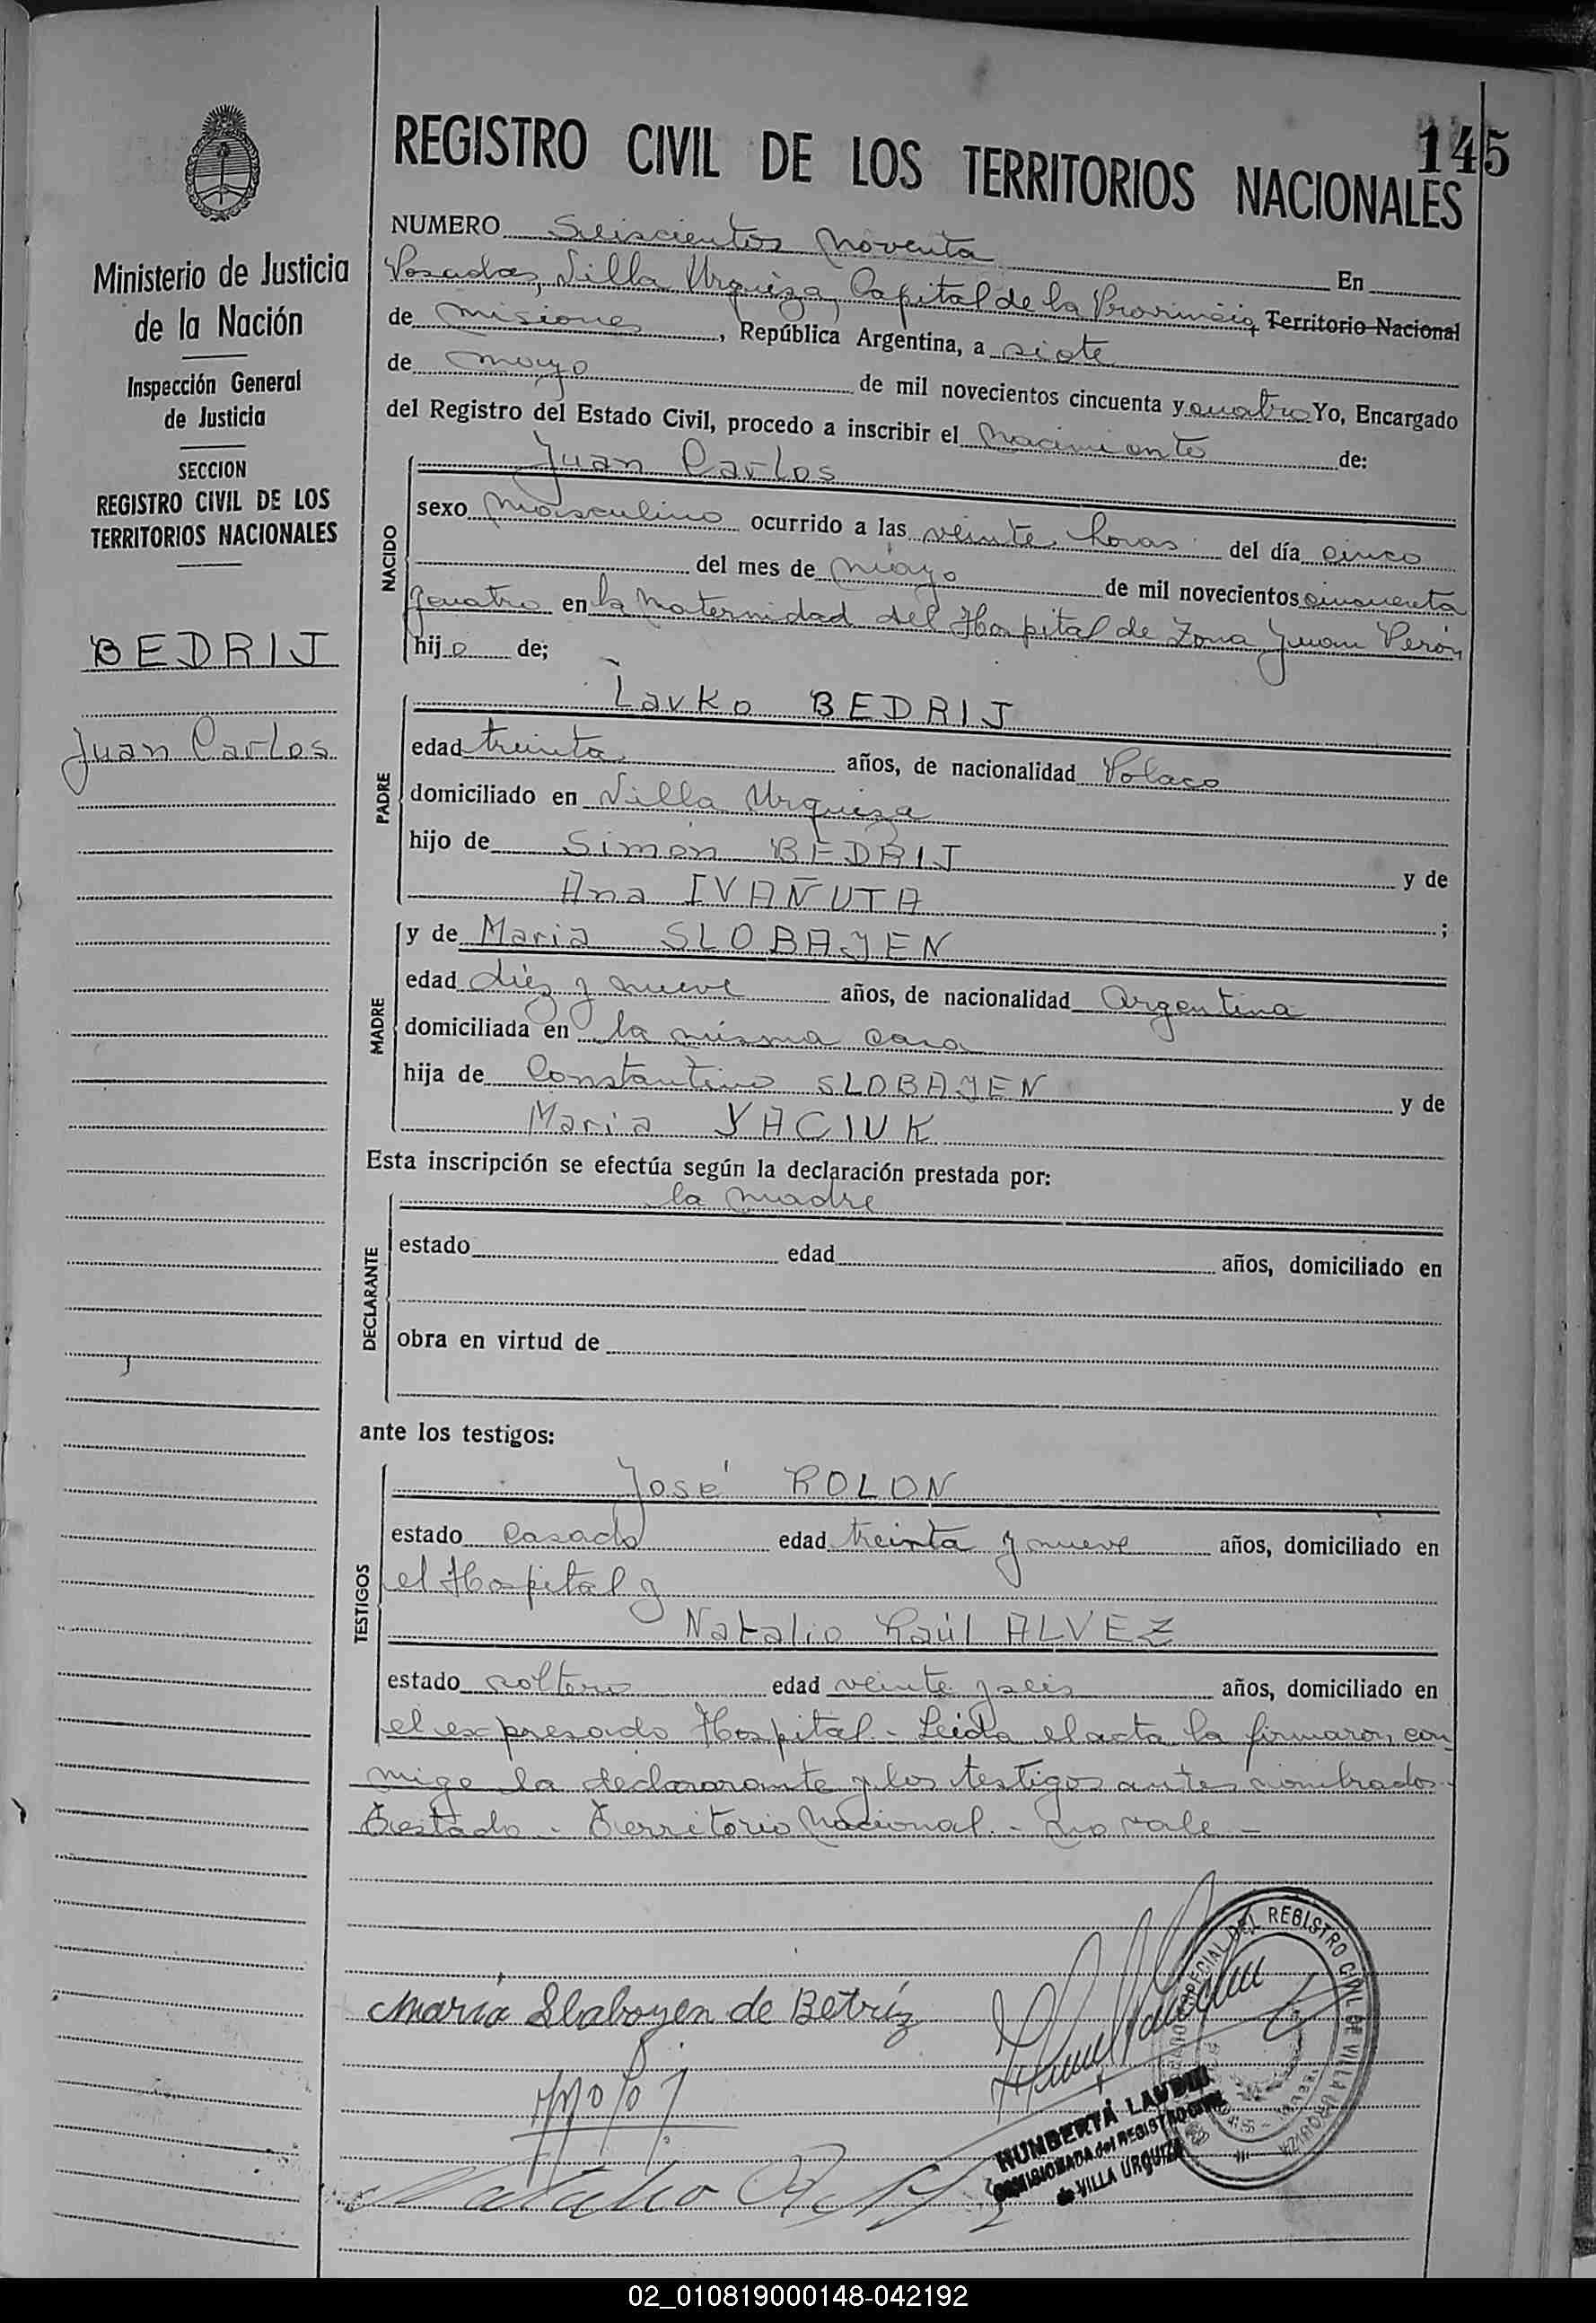 145
REGISTRO CIVIL DE LOS TERRITORIOS NACIONALES
Ministerio de Justicia
de la Nación
Inspección General
de Justicia
SECCION
REGISTRO CIVIL DE LOS
TERRITORIOS NACIONALES
BEDRIJ
Juan Carlos
NUMERO Seiscientos Noventa En
Posadas, Villa Urquiza, Capital de la Provincia Territorio Nacional
de misiones, República Argentina, a siete
de mayo de mil novecientos cincuenta y cuatro Yo, Encargado
del Registro del Estado Civil, procedo a inscribir el Nacimiento de:
NACIDO
Juan Carlos
sexo Masculino ocurrido a las veinte horas del día cinco
del mes de Mayo de mil novecientos cincuenta
y cuatro en la Maternidad del Hospital de Zona Juan Perón
hijo de;
PADRE
Lavko BEDRIJ
edad treinta años, de nacionalidad Polaco
domiciliado en Villa Urquiza
hijo de Simón BEDRIJ y de
Ana IVAÑUTA ;
MADRE
y de Maria SLOBAJEN
edad diez y nueve años, de nacionalidad Argentina
domiciliada en la misma casa
hija de Constantino SLOBAJEN y de
Maria YACIUK
Esta inscripción se efectúa según la declaración prestada por:
DECLARANTE
la madre
estado edad años, domiciliado en
obra en virtud de
ante los testigos:
TESTIGOS
José ROLON
estado casado edad treinta y nueve años, domiciliado en
el Hospital y
Natalio Raúl ALVEZ
estado soltero edad veinte y seis años, domiciliado en
el expresado Hospital - Leida el acta la firmaron con
migo la declarante y los testigos antes nombrados -
Testado - Territorio Nacional - No vale -
Maria Slaboyen de Betriz
Natalio
DEL REGISTRO CIVIL DE VILLA URQUIZA
HUMBERTA
COMISIONADA del REGISTRO CIVIL
de VILLA URQUIZA
02_010819000148-042192